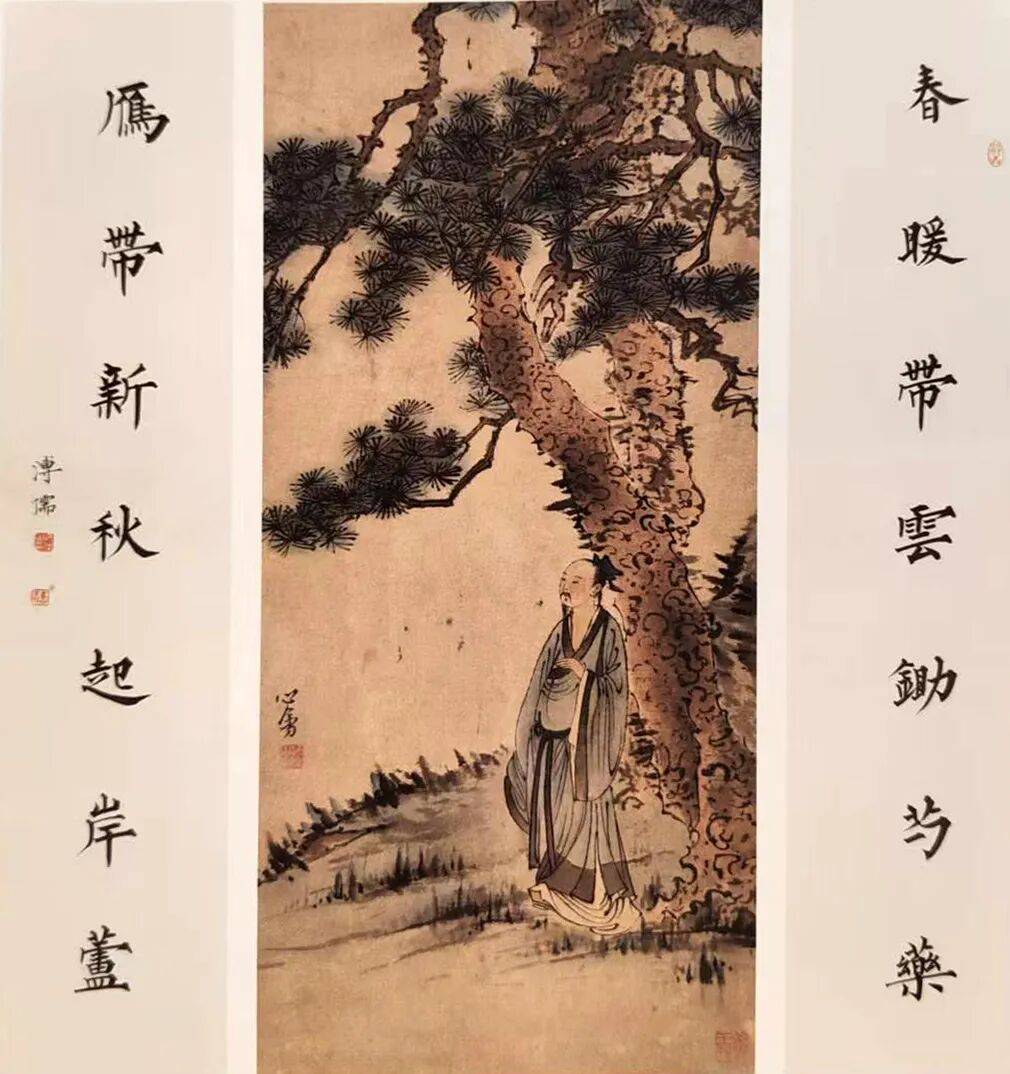 春暖带雲鋤芍藥
鴈帶新秋起岸蘆
溥儒
心畬